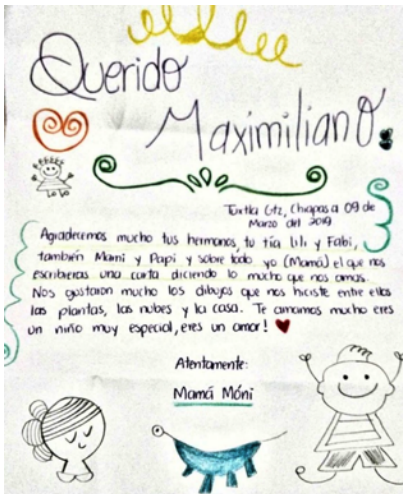 Querido
Maximiliano:
Tuxtla Gtz, Chiapas a 09 de
Marzo del 2019
Agradecemos mucho tus hermanos, tu tía Lili y Fabi,
también Mami y Papi y sobre todo yo (Mamá) el que nos
escribieras una carta diciendo lo mucho que nos amas.
Nos gustaron mucho los dibujos que nos hiciste entre ellos
las plantas, las nubes y la casa. Te amamos mucho eres
un niño muy especial, eres un amor!
Atentamente:
Mamá Móni